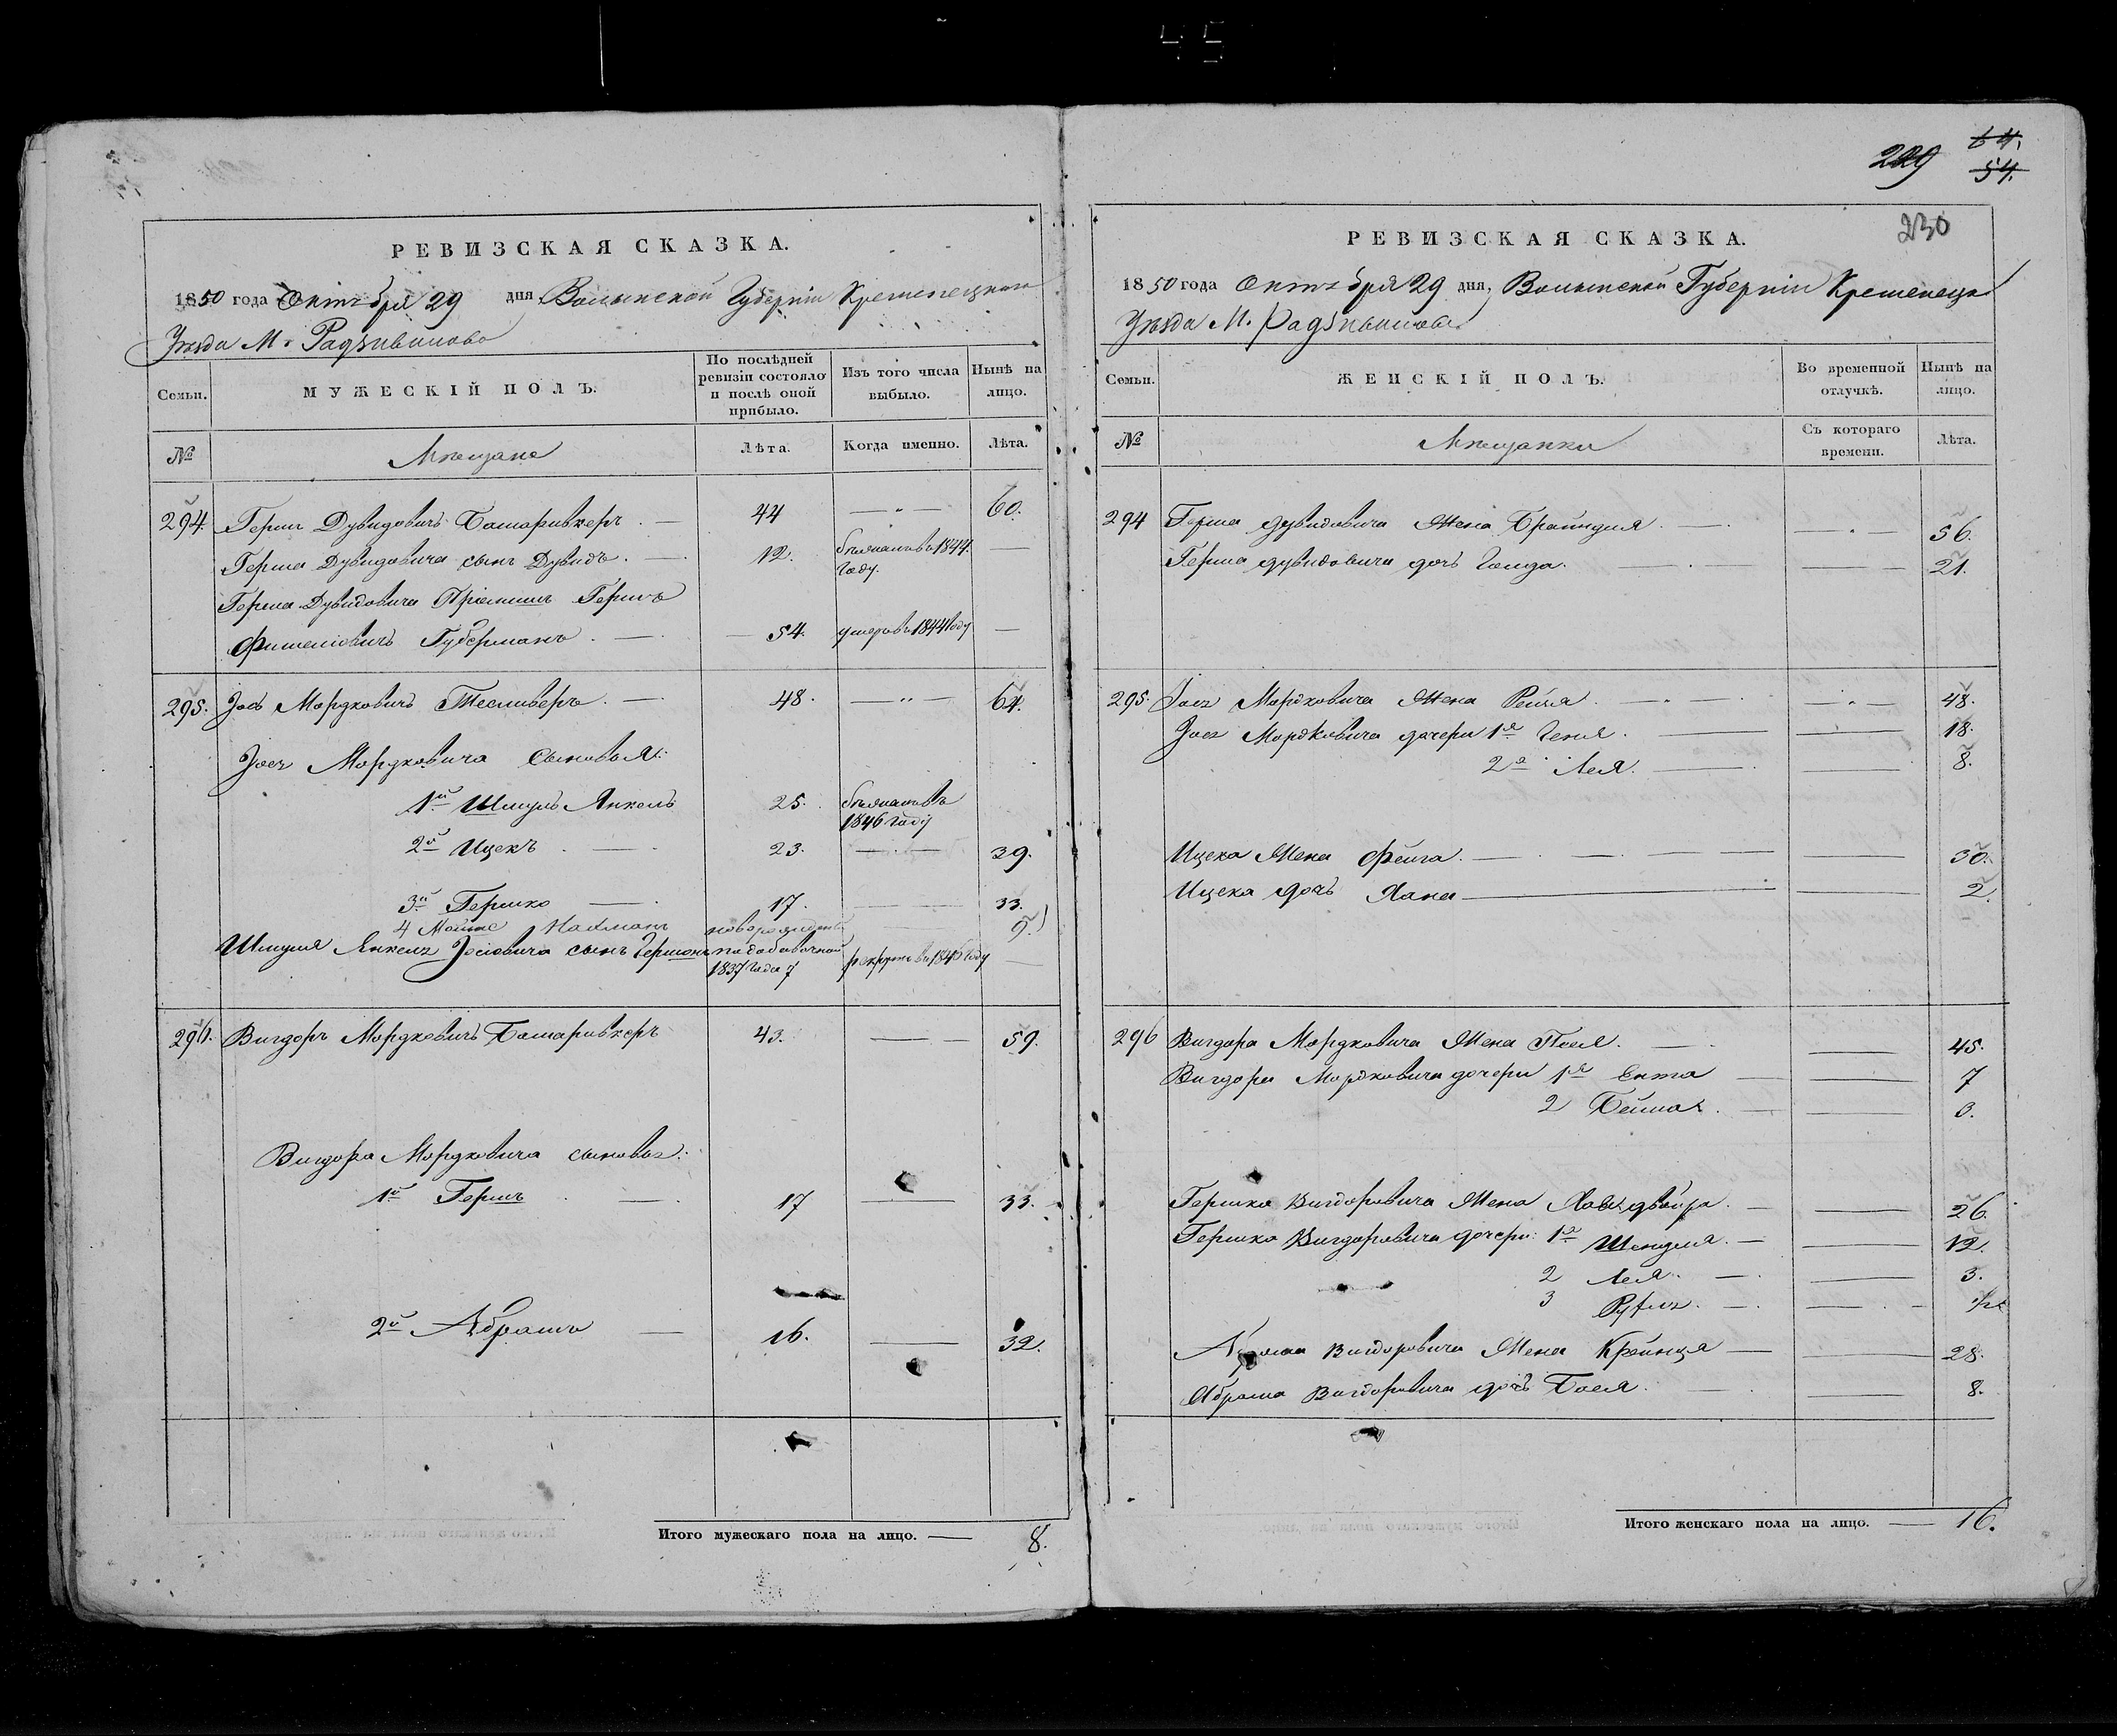 229 64.
54.
230
РЕВИЗСКАЯ СКАЗКА.
1850 года Октября 29 дня Волынской Губерніи Кременецкаго
Уѣзда М. Радзивилова
Семьи.
МУЖЕСКІЙ ПОЛЪ.
По послѣдней ревизіи состояло и послѣ оной прибыло.
Изъ того числа выбыло.
Нынѣ на лицо.
№ Мѣщане Лѣта. Когда именно. Лѣта.
294. Герш Дувидовичъ 44 — " — 60.
Герша Дувидовича сынъ Дувидъ. — 12. 1844. Году. —
Герша Дувидовича Пріемышъ Гершъ
Фишелювичъ Губерманъ. — 54. умеръ въ 1844 году —
295. Іосъ Мордковичъ Тесливеръ. — 48. — " — 64.
Іося Мордковича сыновья:
1й Шмуль Янкель 25. 1846 году
2й Ицекъ — 23. — 39.
3й Гершко — 17. — 33.
4 Нахманъ новорожденный 9.
Шмуля Янкеля Іосіовича сынъ Гершонъ по добавочной 1837 года 7 рекрутъ въ 1846 году —
296. Вигдоръ Мордковичъ 43. — 59.
Вигдора Мордковича сыновья:
1й Гершъ — 17 — 33.
2й Абрамъ — 16. — 32.
Итого мужескаго пола на лицо. — 8.
РЕВИЗСКАЯ СКАЗКА.
1850 года Октября 29 дня, Волынской Губерніи Кременецк
Уѣзда М. Радзивилова
Семьи.
ЖЕНСКІЙ ПОЛЪ.
Во временной отлучкѣ.
Нынѣ на лицо.
№ Мѣщанки Съ котораго времени. Лѣта.
294 Герша Дувидовича Жена Брайндля. — — " — 56.
Герша Дувидовича дочь Голда. — — 21.
295. Іося Мордковича Жена Рейзя. — " — — " — 48.
Іося Мордковича дочери 1я Геня. — — 18.
2я Лея. — — 8.
Ицека Жена Фейга. — — 30.
Ицека дочь Хана — — 2.
296 Вигдора Мордковича Жена Песя. — — 45.
Вигдора Мордковича дочери 1я Ента — — 7
2 — — 3.
Гершка Вигдоровича Жена Двойра. — — 26.
Гершка Вигдоровича дочери: 1я Шендля. — — 12.
2 Лея. — — 3.
3 — — 1/2
Абрама Вигдоровича Жена Крейнця — — 28.
Абрама Вигдоровича дочь Бася. — — 8.
Итого женскаго пола на лицо. — 16.